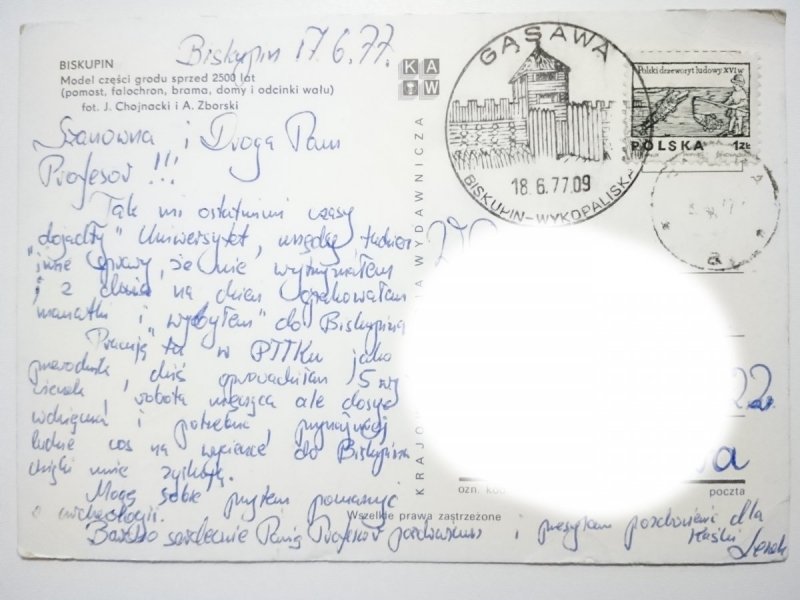 Biskupin 17.6.77.
BISKUPIN
Model części grodu sprzed 2500 lat
(pomost, falochron, brama, domy i odcinki wału)
fot. J. Chojnacki i A. Zborski
KAW
GĄSAWA
18.6.77.09
BISKUPIN-WYKOPALISKA
Polski drzeworyt ludowy XVI w
POLSKA 1 ZŁ
Szanowna i Droga Pani
Profesor !!!
Tak mi ostatnimi czasy
"dojadły" Uniwersytet, urzędy tudzież
inne sprawy, że nie wytrzymałem
i z dnia na dzień spakowałem
manatki i "wybyłem" do Biskupina
Pracuję tu w PTTKu jako
przewodnik, dziś oprowadziłem 5 wy
cieczek, robota męcząca ale dosyć
wdzięczna i potrzebna, przynajmniej
ludzie coś na wycieczce do Biskupina
dzięki mnie zyskają.
Mogę sobie przytem
o archeologii.
Bardzo serdecznie Panią Profesor pozdrawiam i przesyłam pozdrowienia dla
Leszek
WYDAWNICZA
KRAJO
22
a
ozn. kod
poczta
Wszelkie prawa zastrzeżone